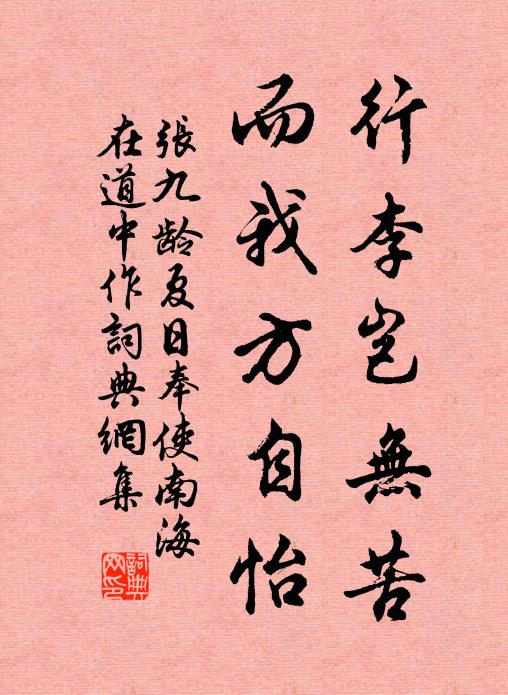 行李岂無苦
而我方自怡
張九龄夏日奉使南海
在道中作詞典網集
詞典网印